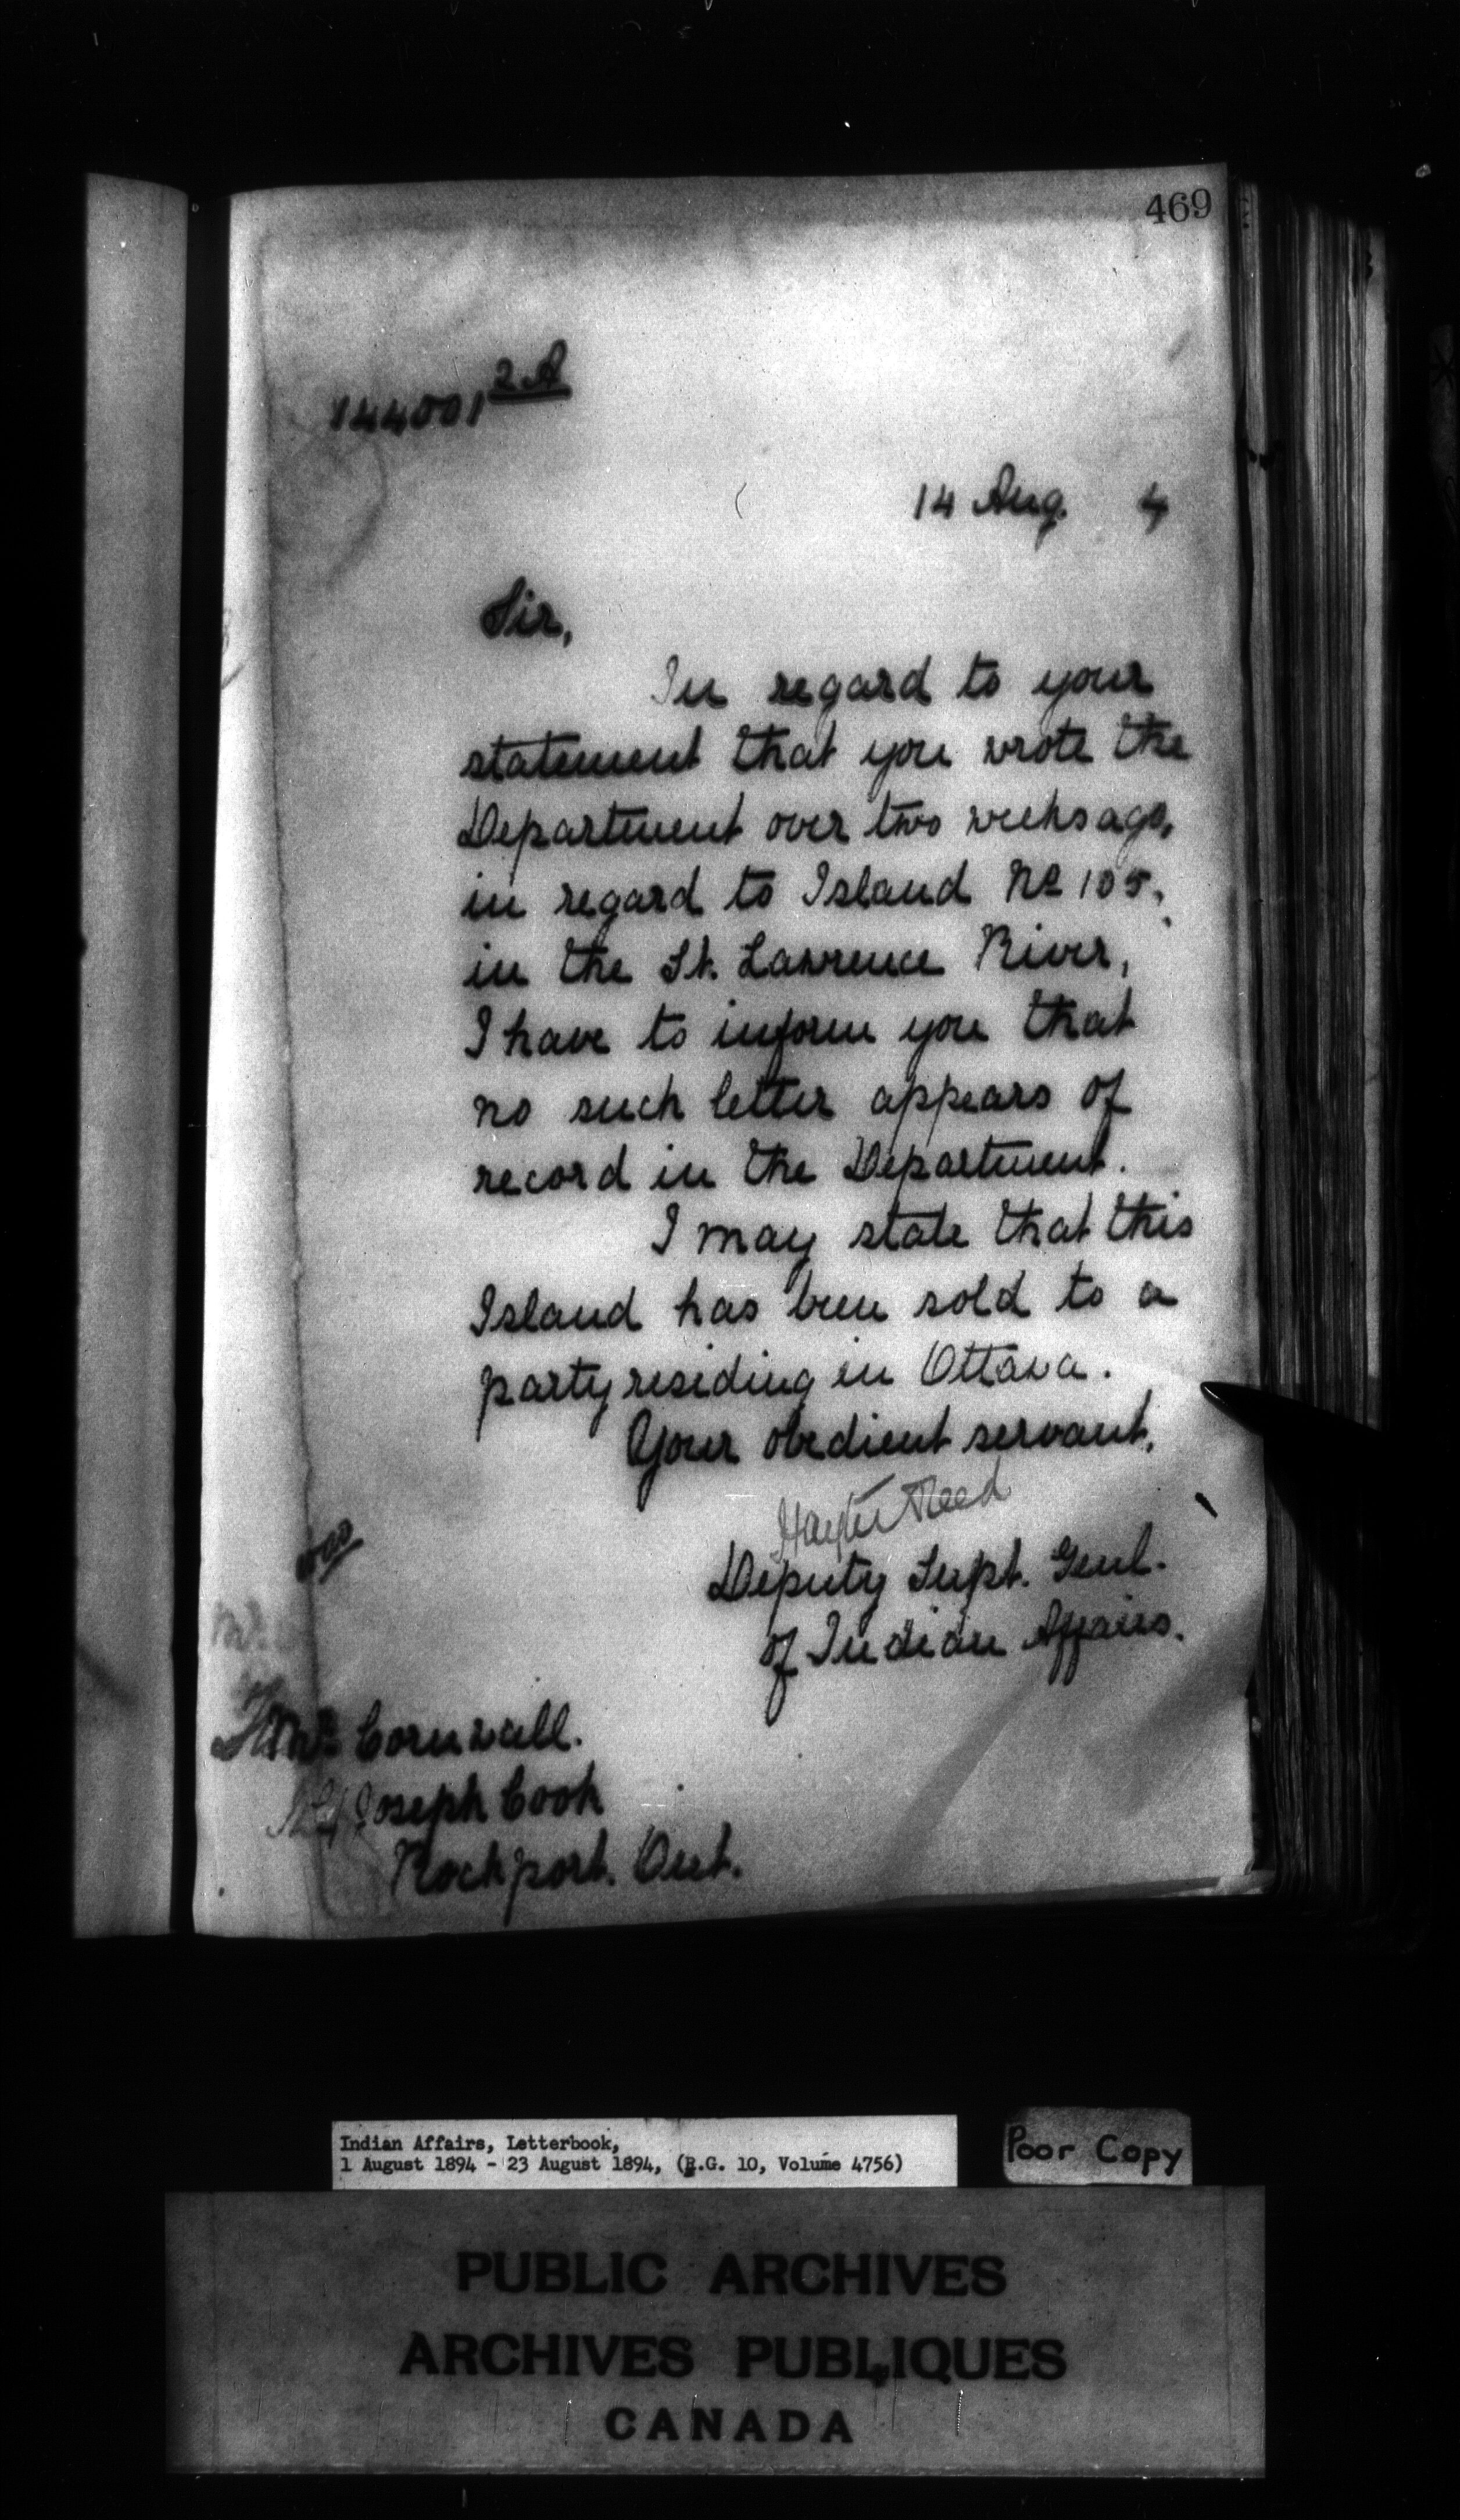 469
144001 2A
14 Aug. 4
Sir,
In regard to your
statement that you wrote the
Department over two weeks ago,
in regard to Island No 105,
in the St. Lawrence River,
I have to inform you that
no such letter appears of
record in the Department.
I may state that this
Island has been sold to a
party residing in Ottawa.
Your obedient servant,
Hayter Reed
Deputy Supt. Genl.
of Indian Affairs.
Mr. Cornwall.
Joseph Cook
Rockport. Ont.
Indian Affairs, Letterbook,
1 August 1894 - 23 August 1894, (R.G. 10, Volume 4756)
Poor Copy
PUBLIC ARCHIVES
ARCHIVES PUBLIQUES
CANADA